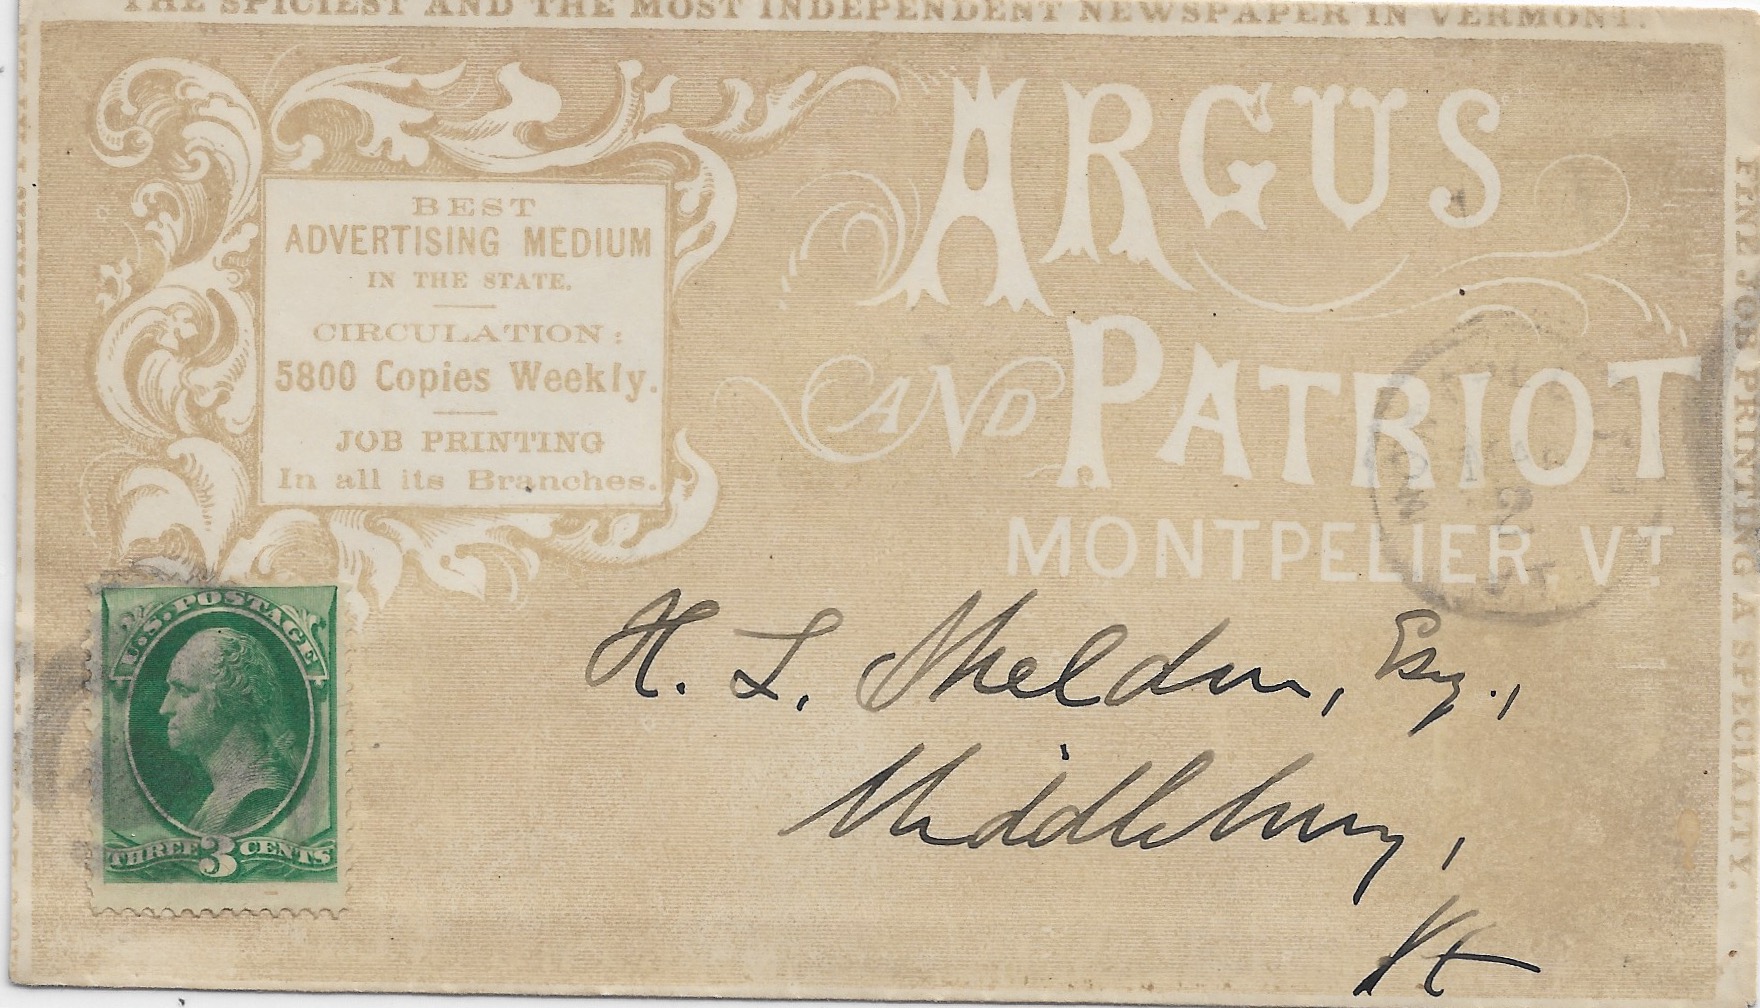 THE SPICIEST AND THE MOST INDEPENDENT NEWSPAPER IN VERMONT.
ARGUS
AND PATRIOT
MONTPELIER, VT
BEST
ADVERTISING MEDIUM
IN THE STATE.
CIRCULATION:
5800 Copies Weekly.
JOB PRINTING
In all its Branches.
FINE JOB PRINTING A SPECIALTY.
H. L. Sheldon, Esq.,
Middlebury,
Vt
U.S. POSTAGE
THREE 3 CENTS